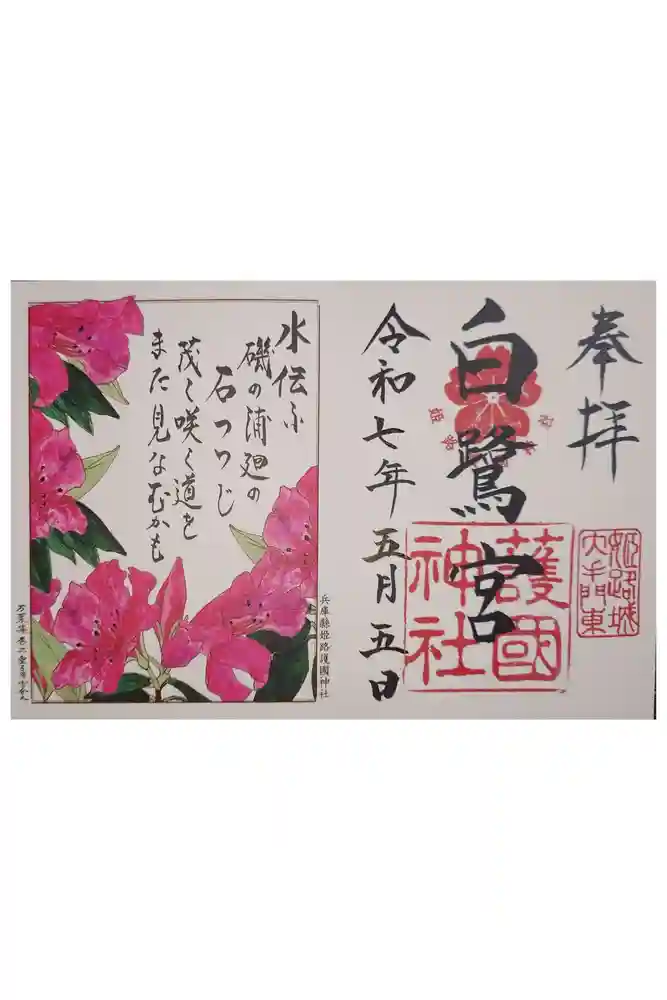 奉拝
姫路城
大手門東
白鷺宮
護國
神社
令和七年五月五日
水伝ふ
磯の浦廻の
石つつじ
茂く咲く道を
また見なむかも
兵庫縣姫路護國神社